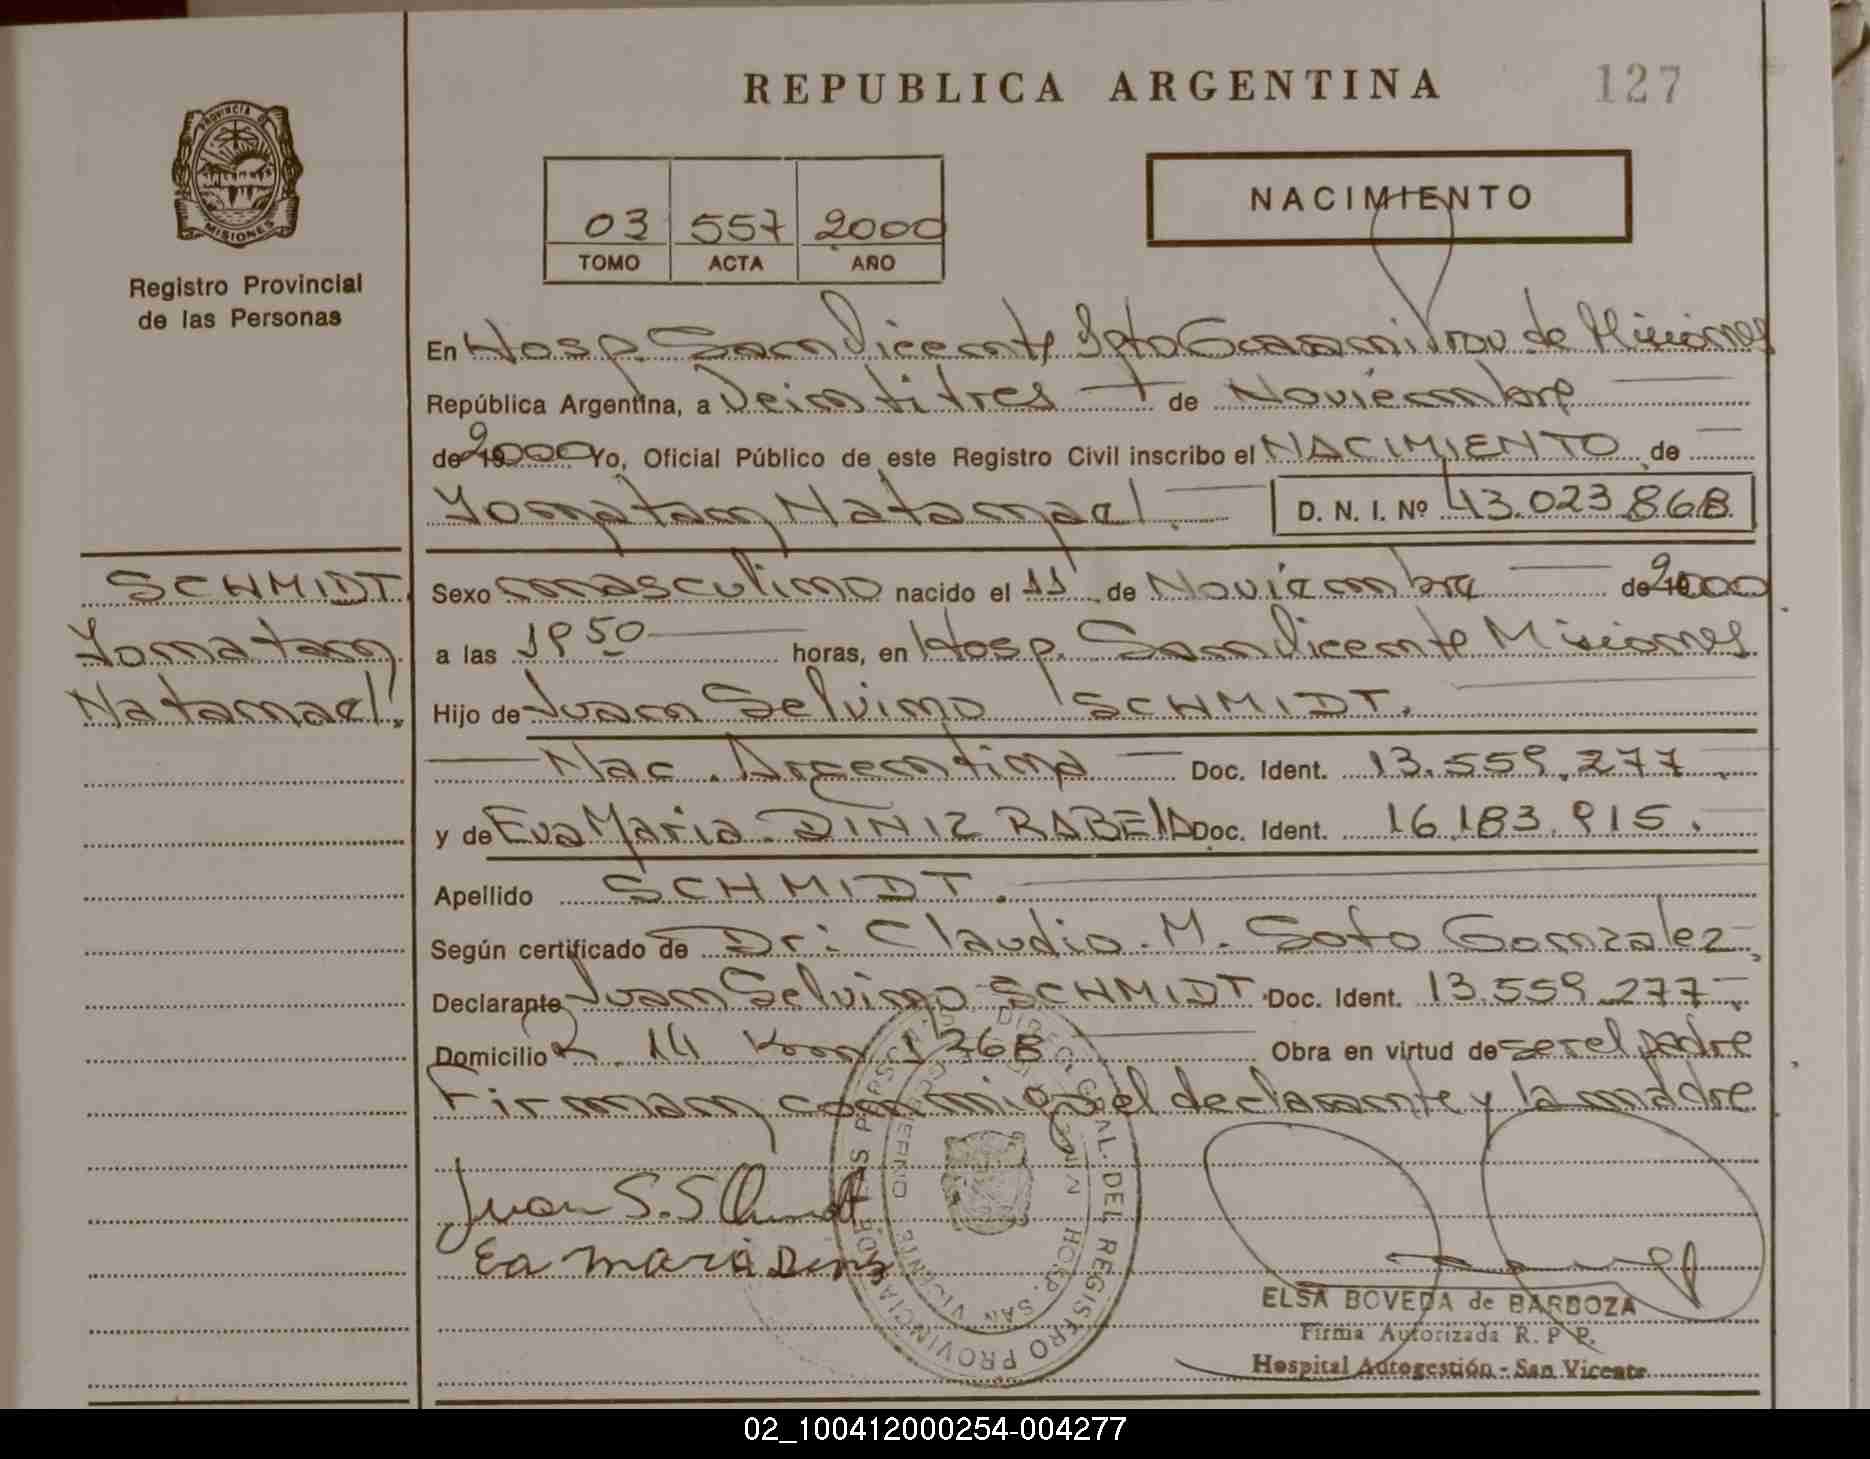 REPUBLICA ARGENTINA
127
PROVINCIA DE
MISIONES
Registro Provincial
de las Personas
03 557 2000
TOMO ACTA AÑO
NACIMIENTO
En Hosp. San Vicente Dpto Guaraní Prov de Misiones
República Argentina, a Veintitres de Noviembre
de 2000 Yo, Oficial Público de este Registro Civil inscribo el NACIMIENTO de
Yonatan Natanael. D. N. I. Nº 43.023.868
SCHMIDT.
Yonatan
Natanael.
Sexo masculino nacido el 11 de Noviembre de 2000
a las 19 50 horas, en Hosp. San Vicente Misiones
Hijo de Juan Selvino SCHMIDT.
Nac. Argentina Doc. Ident. 13.559.277.
y de Eva Maria DINIZ RABELO Doc. Ident. 16.183.915.
Apellido SCHMIDT.
Según certificado de Dr: Claudio. M. Soto Gonzalez.
Declarante Juan Selvino SCHMIDT. Doc. Ident. 13.559.277.
Domicilio R. 14 Km 1268 Obra en virtud de ser el padre
Firman conmigo el declarante y la madre
Juan S. Schmidt
Ea maria Diniz
DIREC. GRAL. DEL REGISTRO PROVINCIAL DE LAS PERSONAS
HOSP. SAN VICENTE
ELSA BOVEDA de BARBOZA
Firma Autorizada R. P. P.
Hospital Autogestión - San Vicente
02_100412000254-004277